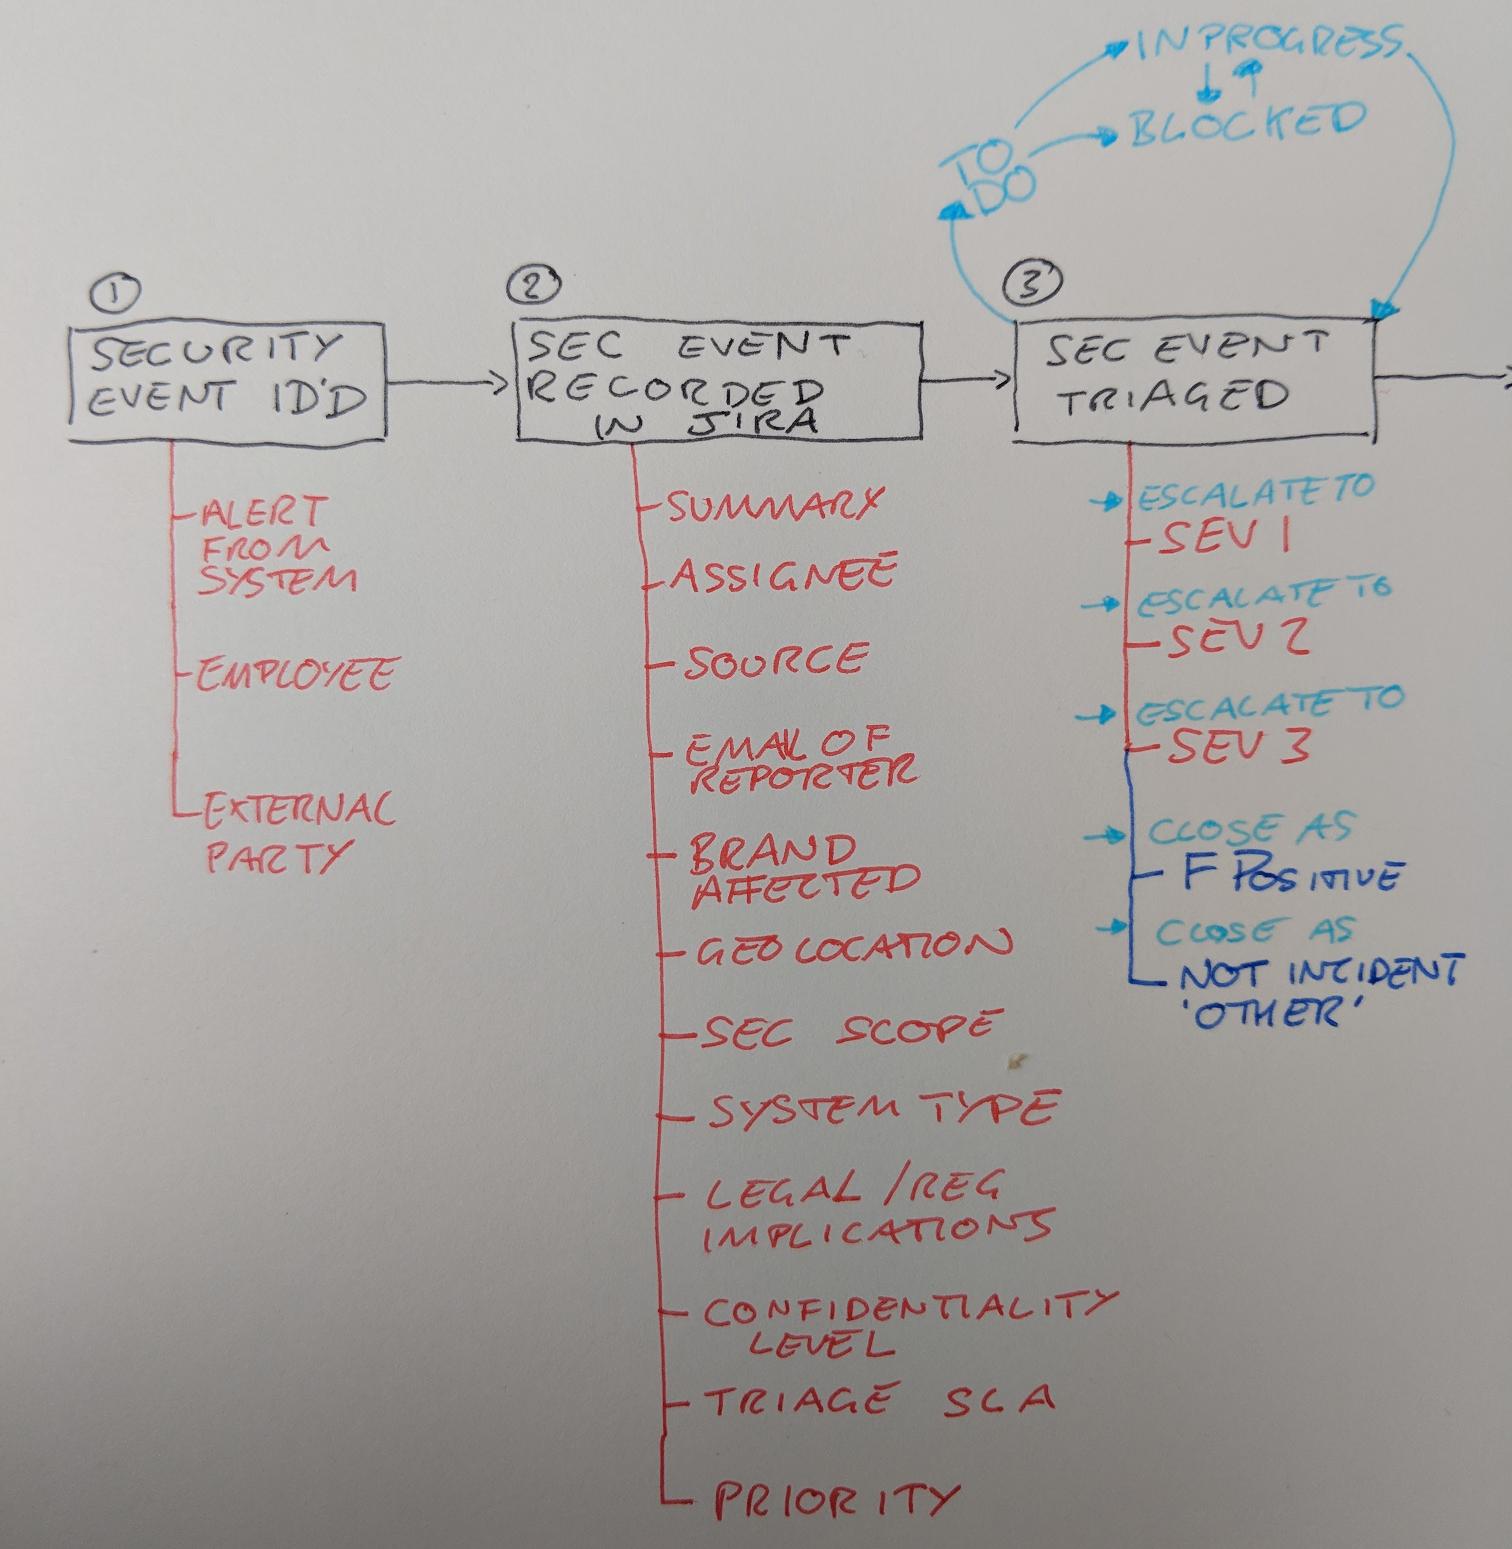 IN PROGRESS
BLOCKED
TO
DO
1
SECURITY
EVENT ID'D
ALERT
FROM
SYSTEM
EMPLOYEE
EXTERNAL
PARTY
2
SEC EVENT
RECORDED
IN JIRA
SUMMARY
ASSIGNEE
SOURCE
EMAIL OF
REPORTER
BRAND
AFFECTED
GEO LOCATION
SEC SCOPE
SYSTEM TYPE
LEGAL / REG
IMPLICATIONS
CONFIDENTIALITY
LEVEL
TRIAGE SLA
PRIORITY
3
SEC EVENT
TRIAGED
ESCALATE TO
SEV 1
ESCALATE TO
SEV 2
ESCALATE TO
SEV 3
CLOSE AS
F POSITIVE
CLOSE AS
NOT INCIDENT
'OTHER'